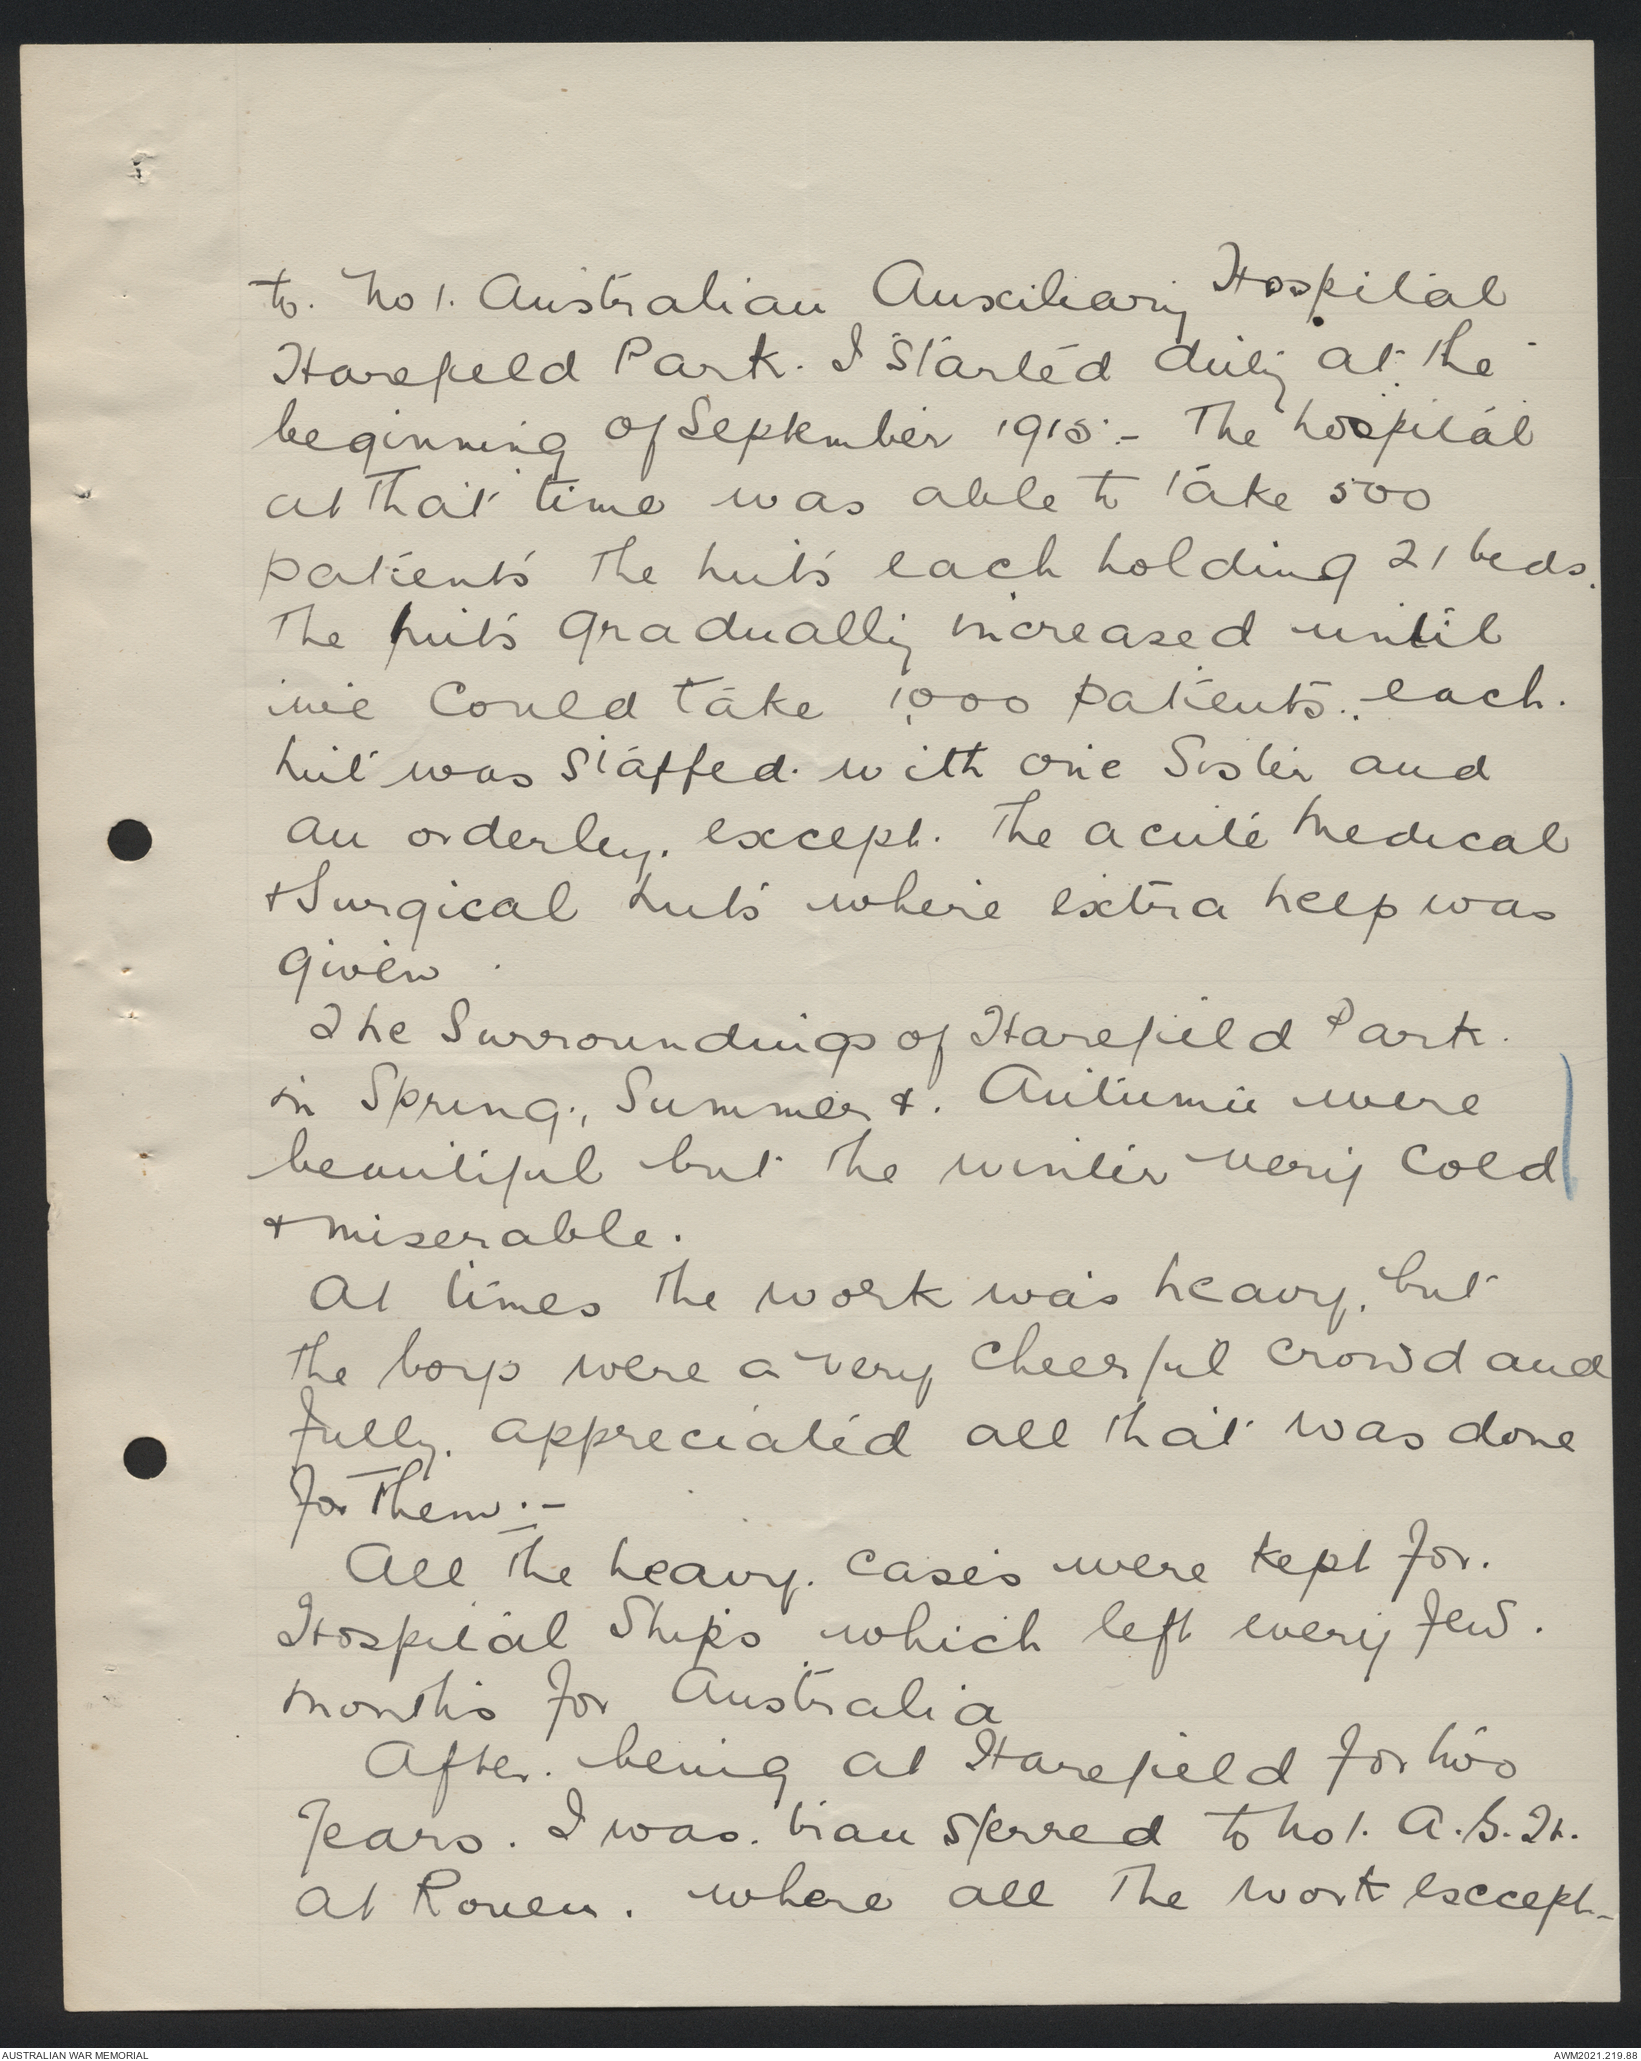 to. No 1. Australian Auxiliary Hospital
Harefield Park. I started duty at the
beginning of September 1915:- The hospital
at that time was able to take 500
patients the huts each holding 21 beds.
The huts gradually increased until
we could take 1,000 patients., each.
hut was staffed. with one Sister and
an orderley. except. the acute medical
& Surgical huts where extra help was
given.
The Surroundings of Harefield Park.
in Spring., Summer &. Autumn were
beautiful but the winter very cold
& miserable.
At times the work was heavy, but
the boys were a very cheerful crowd and
fully. appreciated all that was done
for them:-
All the heavy. cases were kept for.
Hospital Ships which left every few.
months for Australia
After. being at Harefield for two
years. I was. transferred to No 1. A.G.H.
at Rouen. where all the work except-
AUSTRALIAN WAR MEMORIAL
AWM2021.219.88